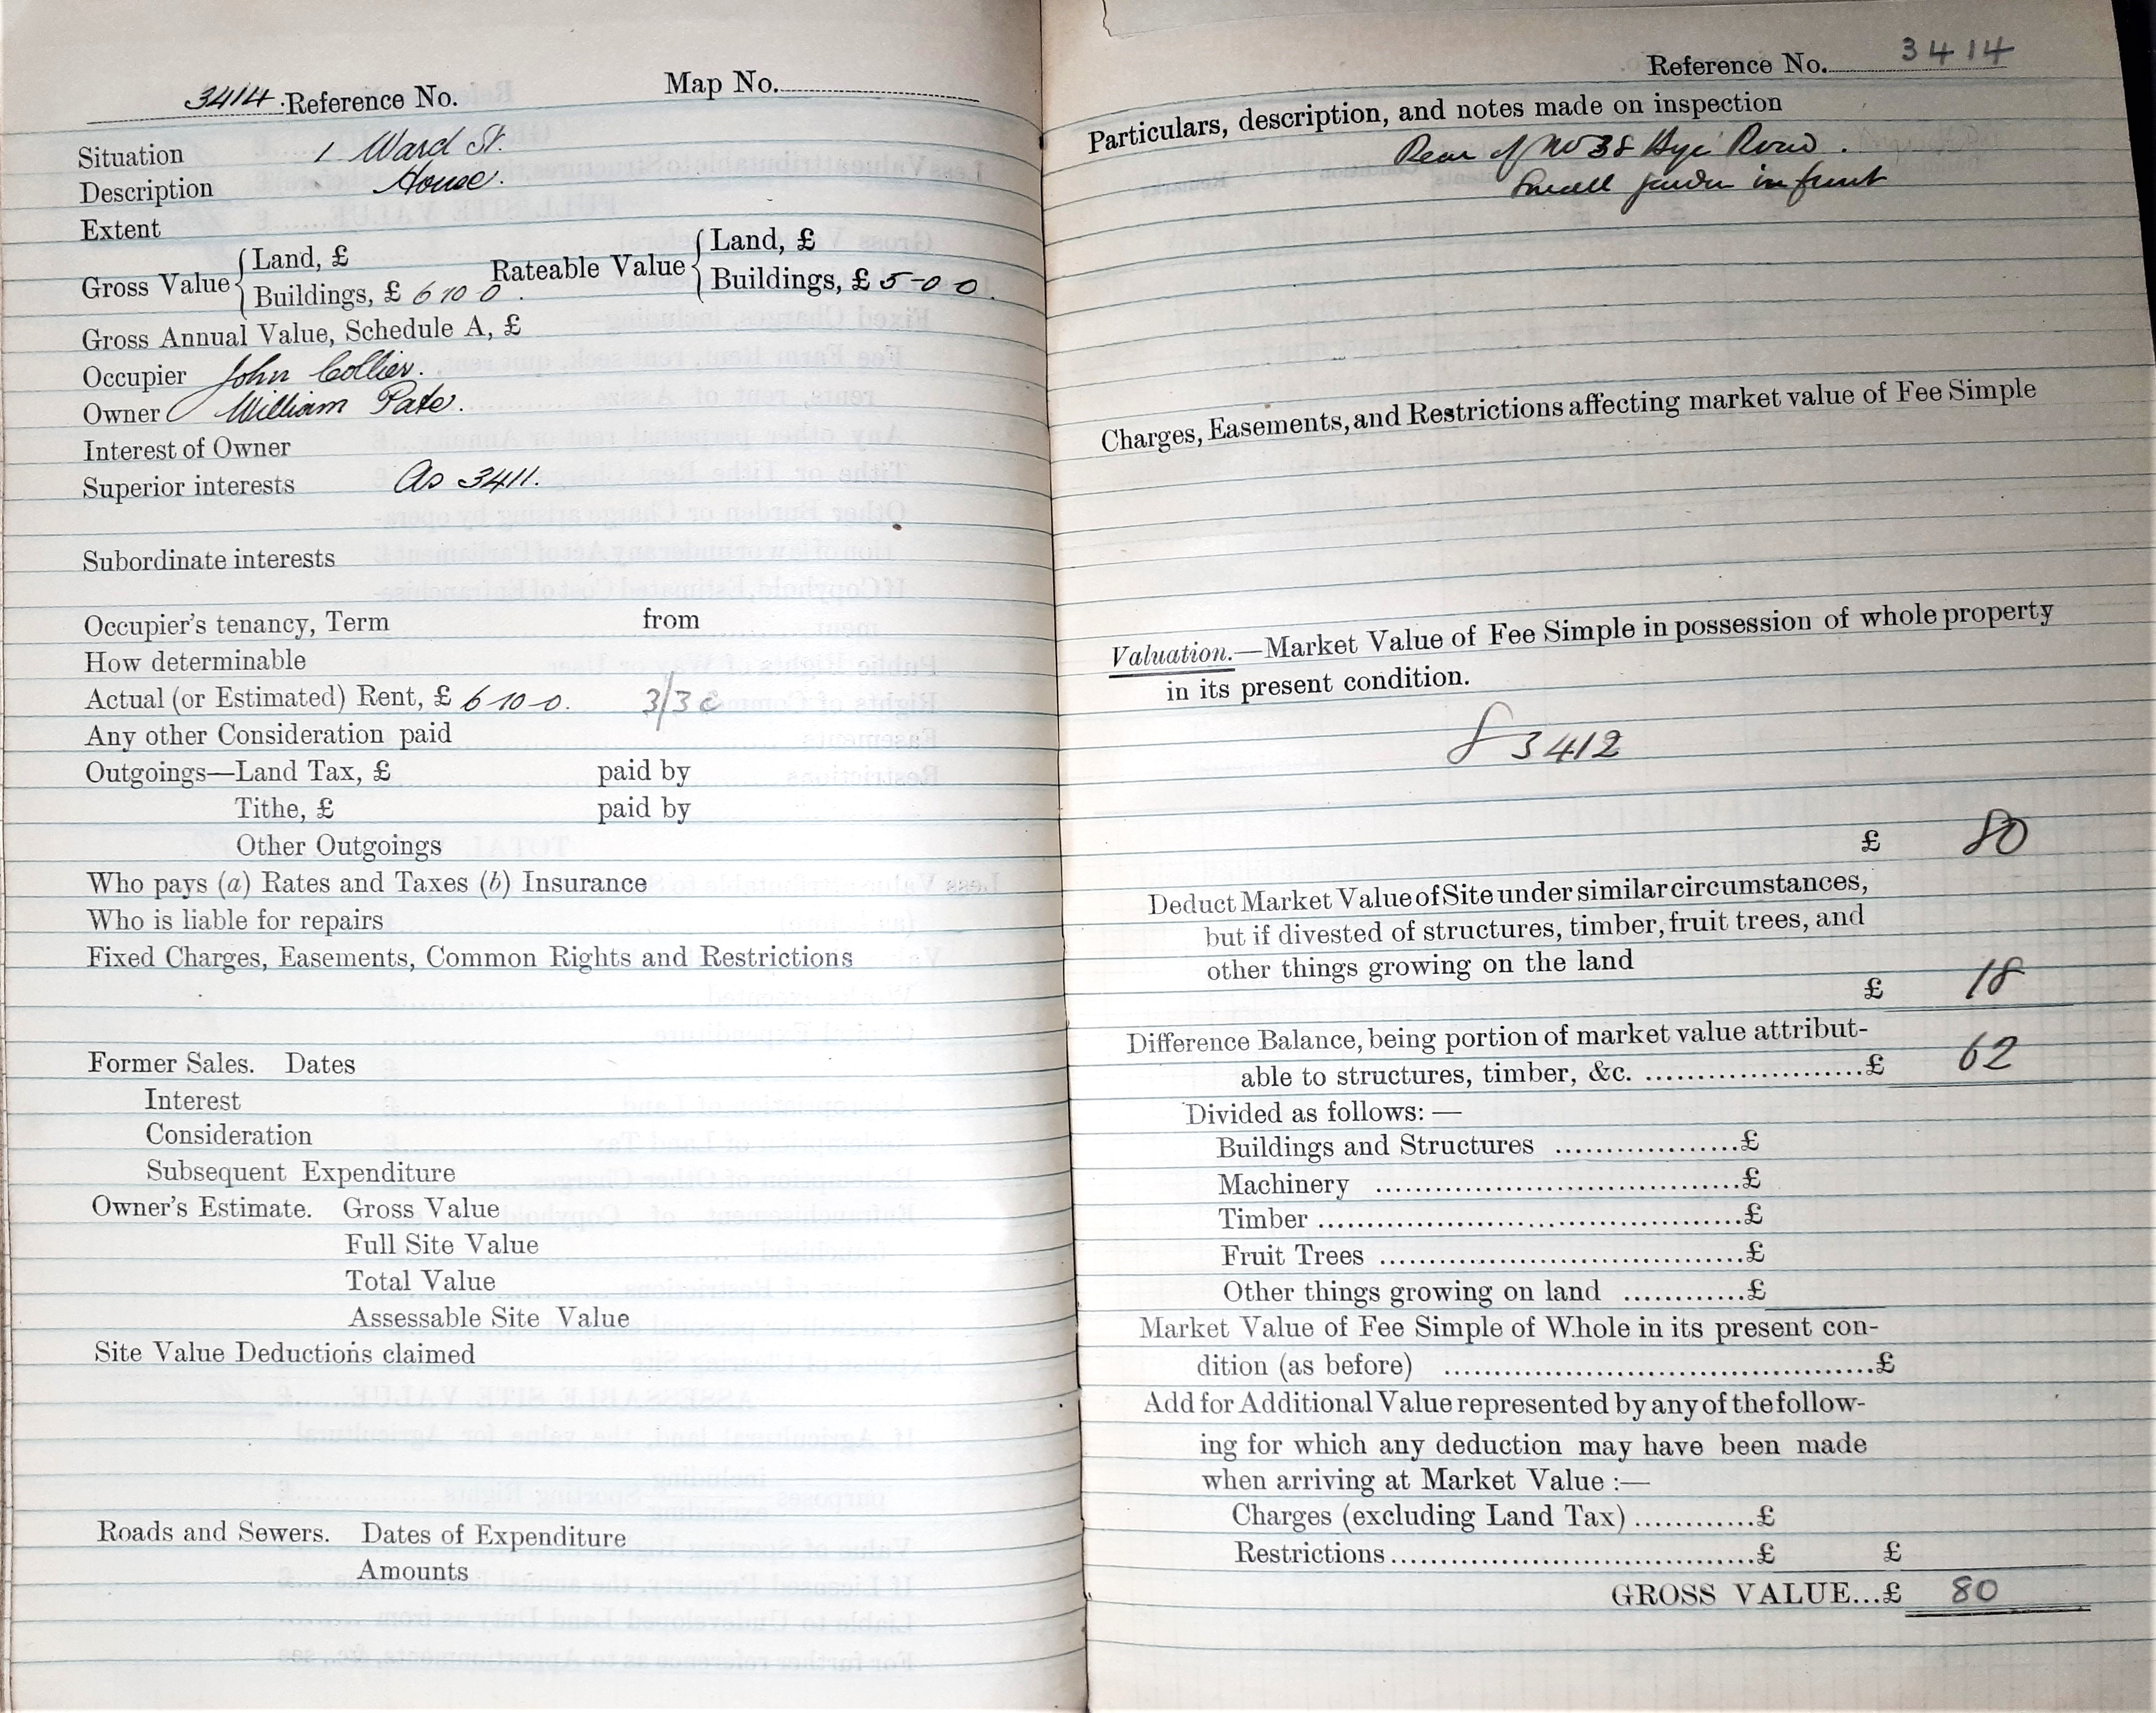 3414 Reference No. Map No.
Situation 1 Ward St.
Description House.
Extent
Gross Value { Land, £
Buildings, £ 6 10 0.
Rateable Value { Land, £
Buildings, £ 5-0 0.
Gross Annual Value, Schedule A, £
Occupier John Collier.
Owner William Pate.
Interest of Owner
Superior interests As 3411.
Subordinate interests
Occupier's tenancy, Term from
How determinable
Actual (or Estimated) Rent, £ 6-10-0. 3/3
Any other Consideration paid
Outgoings—Land Tax, £ paid by
Tithe, £ paid by
Other Outgoings
Who pays (a) Rates and Taxes (b) Insurance
Who is liable for repairs
Fixed Charges, Easements, Common Rights and Restrictions
Former Sales. Dates
Interest
Consideration
Subsequent Expenditure
Owner's Estimate. Gross Value
Full Site Value
Total Value
Assessable Site Value
Site Value Deductions claimed
Roads and Sewers. Dates of Expenditure
Amounts
Reference No. 3414
Particulars, description, and notes made on inspection
Rear of No 38 Row.
Small garden in front
Charges, Easements, and Restrictions affecting market value of Fee Simple
Valuation.—Market Value of Fee Simple in possession of whole property
in its present condition.
3412
£ 80
Deduct Market Value of Site under similar circumstances,
but if divested of structures, timber, fruit trees, and
other things growing on the land
£ 18
Difference Balance, being portion of market value attribut-
able to structures, timber, &c. ......................£ 62
Divided as follows: —
Buildings and Structures ..................£
Machinery ....................................£
Timber ..........................................£
Fruit Trees ....................................£
Other things growing on land ............£
Market Value of Fee Simple of Whole in its present con-
dition (as before) ..........................................£
Add for Additional Value represented by any of the follow-
ing for which any deduction may have been made
when arriving at Market Value :—
Charges (excluding Land Tax) ............£
Restrictions ....................................£ £
GROSS VALUE...£ 80